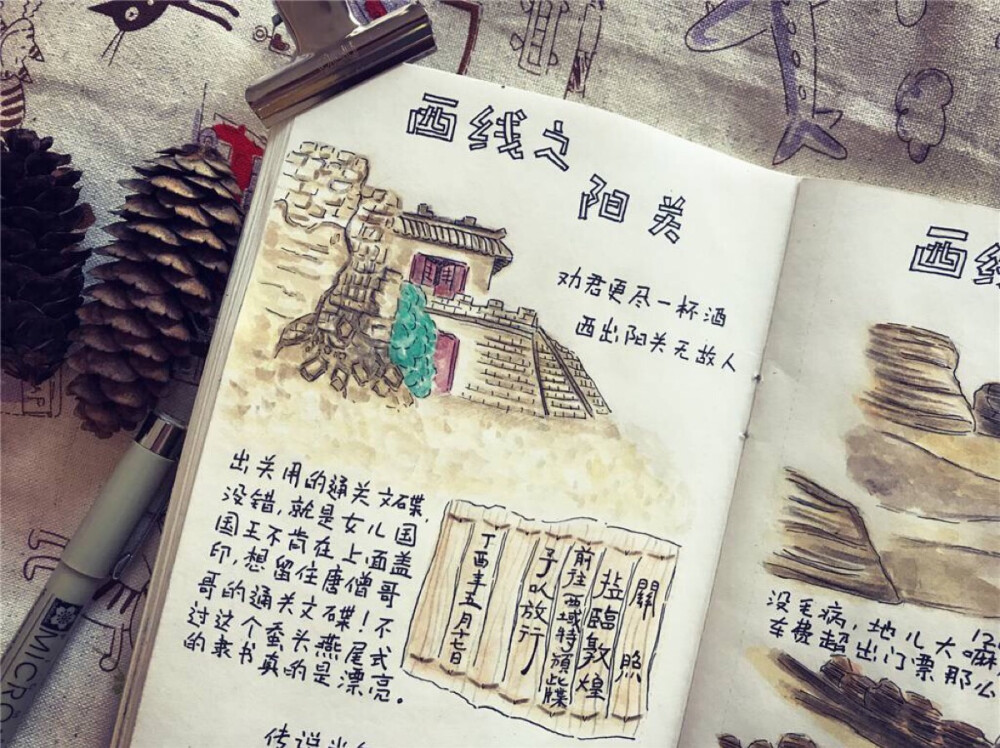 西线之
阳关
劝君更尽一杯酒
西出阳关无故人
出关用的通关文碟,
没错,就是女儿国
国王不肯在上面盖
印,想留住唐僧哥
哥的通关文碟!不
过这个蚕头燕尾式
的隶书真的是漂亮。
關 照
莅臨敦煌
前往西域特頒此牒
予以放行
丁酉年五月十七日
传说当年
西线
没毛病,地儿大嘛
车费超出门票那么
MICRO